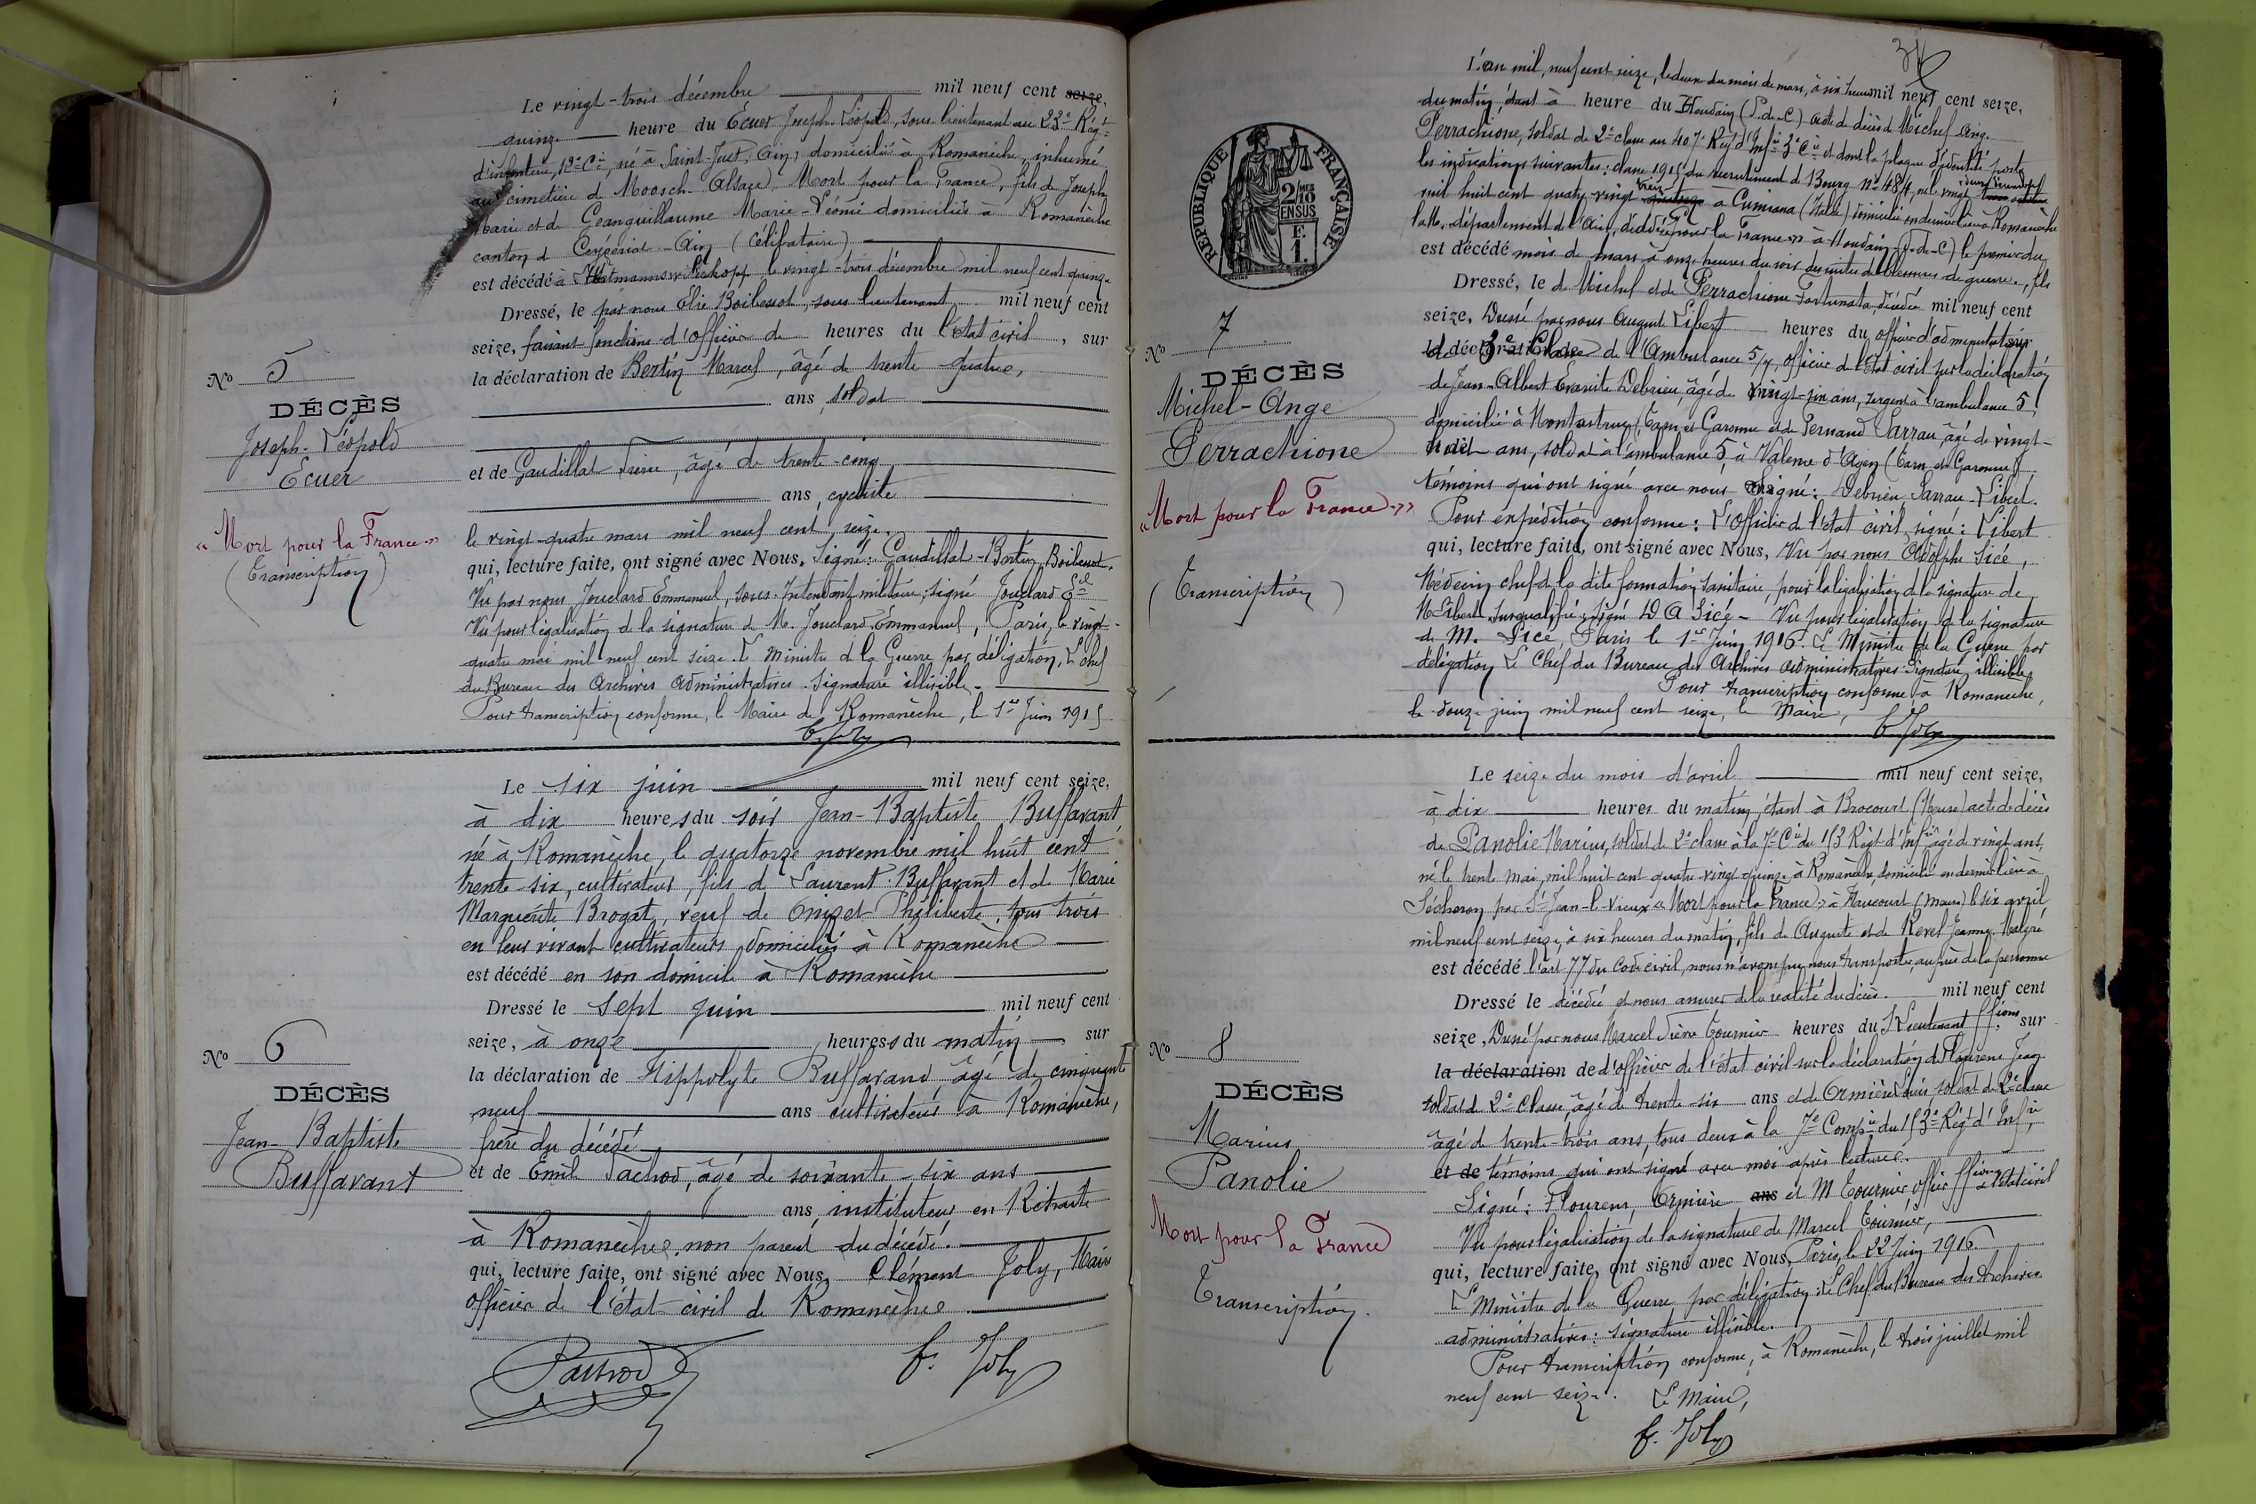 Le vingt-trois décembre mil neuf cent seize,
quinze heure du Ecuer Joseph-Léopold, sous-lieutenant au 23e Régt
d'infanterie, 12e Cie, né à Saint-Just, Ain, domicilié à Romanèche, inhumé
au cimetière de Moosch-Alsace). Mort pour la France, fils de Joseph
Marie et de Geanguillaume Marie-Léonie domiciliés à Romanèche
canton de Ceyzériat-Ain (célibataire)
est décédé à le vingt-trois décembre mil neuf cent quinze
Dressé, le par nous Elie Boibessot, sous-lieutenant mil neuf cent
seize, faisant fonctions d'officier de heures du l'état civil, sur
la déclaration de Bertin Marcel, âgé de trente quatre,
ans, soldat
et de Gaudillat Pierre, âgé de trente-cinq
ans, cycliste
le vingt-quatre mars mil neuf cent seize.
qui, lecture faite, ont signé avec Nous. Signé: Gaudillat-Bertin, Boibessot.
Vu par nous Jouclard Emmanuel, sous-Intendant militaire; signé Jouclard Eel
Vu pour légalisation de la signature de M. Jouclard Emmanuel, Paris, le vingt-
quatre mai mil neuf cent seize. Le Ministre de la Guerre par délégation, Le chef
du Bureau des Archives Administratives. Signature illisible.
Pour transcription conforme, le Maire de Romanèche, le 1er Juin 1915
C. Joly
No 5
DÉCÈS
Joseph-Léopold
Ecuer
« Mort pour la France »
(Transcription)
Le six juin mil neuf cent seize,
à dix heures du soir Jean-Baptiste Buffavant
né à Romanèche, le quatorze novembre mil huit cent
trente-six, cultivateur, fils de Laurent Buffavant et de Marie
Marguerite Brogat, veuf de Philiberte, tous trois
en leur vivant cultivateurs domiciliés à Romanèche
est décédé en son domicile à Romanèche
Dressé le sept juin mil neuf cent
seize, à onze heures du matin sur
la déclaration de Hippolyte Buffavand, âgé de cinquante
neuf ans cultivateur à Romanèche,
frère du décédé
et de Emile Pachod, âgé de soixante-six ans
ans, instituteur en Retraite
à Romanèche, non parent du décédé.
qui, lecture faite, ont signé avec Nous, Clément Joly, Maire
officier de l'état-civil de Romanèche
Pachod C. Joly
No 6
DÉCÈS
Jean-Baptiste
Buffavant
34
L'an mil neuf cent seize, le deux du mois de mars, à six heures mil neuf cent seize,
du matin, étant à heure du Houdain (P.-de-C) Acte de décès de Michel Ange
Perrachione, soldat de 2e classe au 407e Régt d'Infie 3e Cie et dont la plaque d'identité porte
les indications suivantes: classe 1915 du recrutement de Bourg No 484, né le vingt
mil huit cent quatre-vingt treize à Cumiana (Italie) domicilié en dernier lieu à Romanèche
département de l'Ain, décédé pour la France » à Houdain (P-de-C) le premier du
est décédé mois de mars à onze heures du soir des suites de blessures de guerre, fils
Dressé, le de Michel et de Perrachione Fortunata, décédée mil neuf cent
seize, Dressé par nous August Libert heures du officier d'administration sur
la déclaration de 3e Classe de l'Ambulance 5/4, officier de l'état civil sur la déclaration
de Jean-Albert Debrieu, âgé de vingt-six ans, sergent à l'ambulance 5,
domicilié à Montastruc, Tarn et Garonne et de Fernand Sarrau âgé de vingt-
ans, soldat à l'ambulance 5, à Valence d'Agen (Tarn et Garonne)
témoins qui ont signé avec nous signé: Debrieu Sarrau-Libert.
Pour expédition conforme: L'Officier de l'état civil signé: Libert
qui, lecture faite, ont signé avec Nous, Vu par nous Adolphe Sicé,
Médecin chef de la dite formation sanitaire, pour la légalisation de la signature de
M. Libert, susqualifié, signé D A Sicé - Vu pour légalisation de la signature
de M. Sicé Paris le 1er Juin 1916. Le Ministre de la Guerre par
délégation Le Chef du Bureau des Archives administratives Signature illisible,
Pour transcription conforme à Romanèche,
le douze juin mil neuf cent seize, le Maire,
C. Joly
RÉPUBLIQUE FRANÇAISE
2/10 EN SUS
No 7
DÉCÈS
Michel-Ange
Perrachione
« Mort pour la France »
(Transcription)
Le seize du mois d'avril mil neuf cent seize,
à dix heures du matin, étant à Brocourt (Meuse) acte de décès
de Panolie Marius, soldat de 2e classe à la 7e Cie du 153 Régt d'Infie âgé de vingt ans,
né le trente mai, mil huit cent quatre-vingt quinze à Romanèche, domicilié en dernier lieu à
Sécheron par St-Jean-le-Vieux « Mort pour la France » à Haucourt (Meuse) le six avril
mil neuf cent seize, à six heures du matin, fils de Auguste et de Revel Jeanne. Malgré
est décédé l'art 77 du Code civil, nous n'avons pu nous transporter auprès de la personne
Dressé le décédé et nous assurer de la réalité du décès. mil neuf cent
seize, Dressé par nous Marcel Pierre Tournier heures du Lieutenant ffions sur
la déclaration de d'officier de l'état civil sur la déclaration de Flourens Jean
soldat de 2e Classe âgé de trente-six ans et de Ormière Louis soldat de 2e classe
âgé de trente-trois ans, tous deux à la 7e Compie du 153e Régt d'Infie,
et de témoins qui ont signé avec moi après lecture.
Signé: Flourens, Ormière ans et M Tournier, officier ffions de l'état civil
Vu pour légalisation de la signature de Marcel Tournier,
qui, lecture faite, ont signé avec Nous, Paris, le 22 Juin 1916.
Le Ministre de la Guerre par délégation: Le Chef du Bureau des Archives
administratives: signature illisible.
Pour transcription conforme, à Romanèche, le trois juillet mil
neuf cent seize. Le Maire,
C. Joly
No 8
DÉCÈS
Marius
Panolie
Mort pour la France
Transcription.